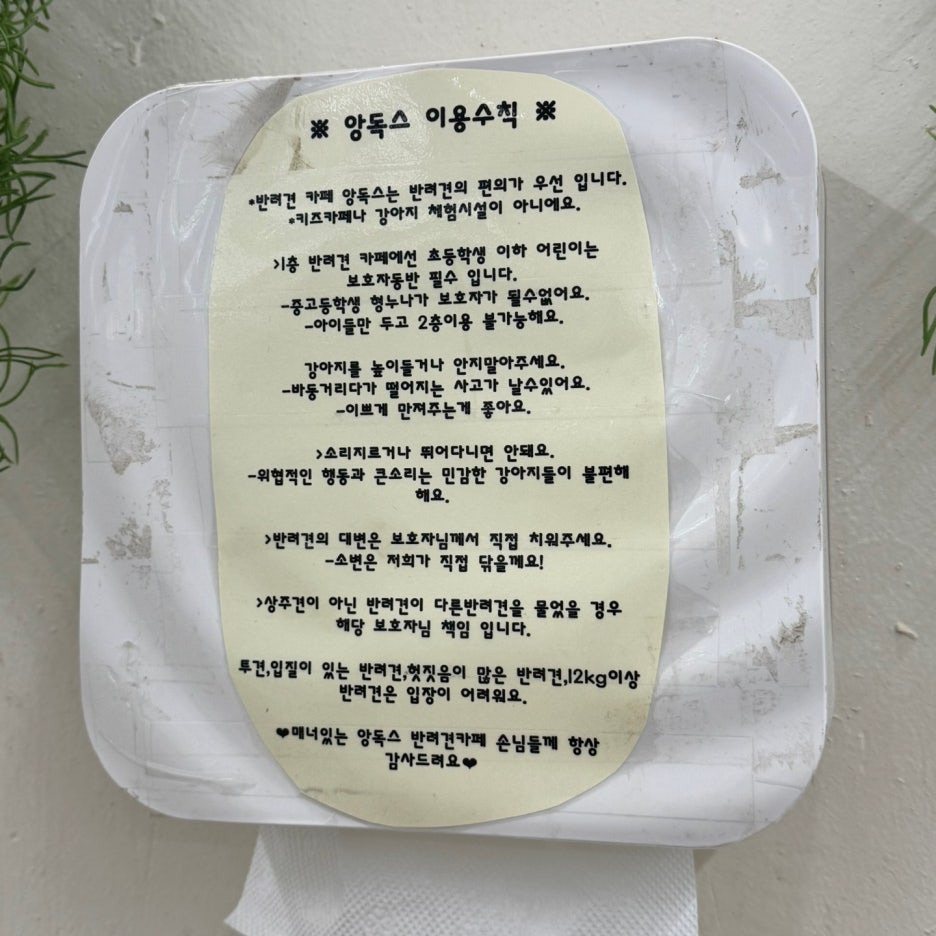 ※ 앙독스 이용수칙 ※
*반려견 카페 앙독스는 반려견의 편의가 우선 입니다.
*키즈카페나 강아지 체험시설이 아니에요.
>1층 반려견 카페에선 초등학생 이하 어린이는
보호자동반 필수 입니다.
-중고등학생 형누나가 보호자가 될수없어요.
-아이들만 두고 2층이용 불가능해요.
강아지를 높이들거나 안지말아주세요.
-바둥거리다가 떨어지는 사고가 날수있어요.
-이쁘게 만져주는게 좋아요.
>소리지르거나 뛰어다니면 안돼요.
-위협적인 행동과 큰소리는 민감한 강아지들이 불편해
해요.
>반려견의 대변은 보호자님께서 직접 치워주세요.
-소변은 저희가 직접 닦을께요!
>상주견이 아닌 반려견이 다른반려견을 물었을 경우
해당 보호자님 책임 입니다.
투견,입질이 있는 반려견,헛짖음이 많은 반려견,12kg이상
반려견은 입장이 어려워요.
❤매너있는 앙독스 반려견카페 손님들께 항상
감사드려요❤